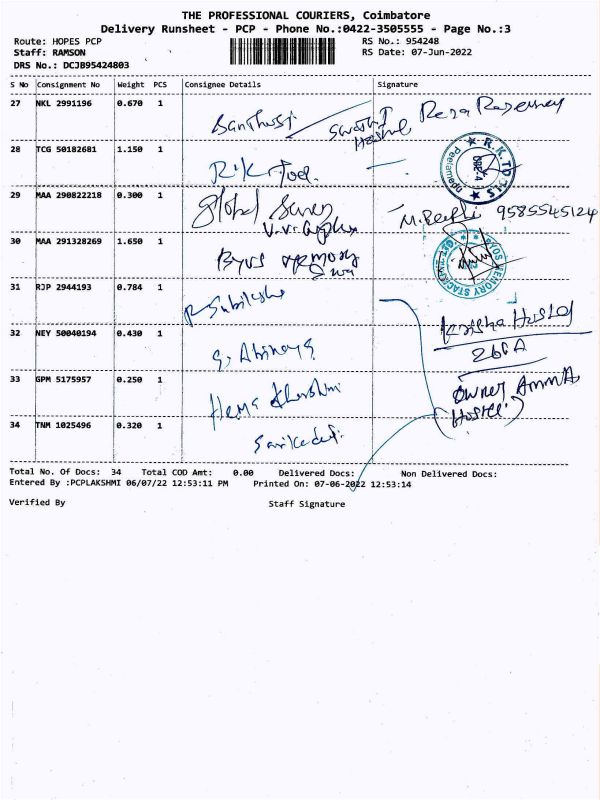 THE PROFESSIONAL COURIERS, Coimbatore
Delivery Runsheet - PCP - Phone No.:0422-3505555 - Page No.:3
Route: HOPES PCP RS No.: 954248
Staff: RAMSON RS Date: 07-Jun-2022
DRS No.: DCJB95424803
S No Consignment No Weight PCS Consignee Details Signature
27 NKL 2991196 0.670 1
Hostel
28 TCG 50182681 1.150 1 R.K. Tool.
R.K.TOOLS
Peelamedu
29 MAA 290822218 0.300 1 global 9585545124
30 MAA 291328269 1.650 1 Byos memory
BYOS MEMORY STACK
31 RJP 2944193 0.784 1 R Subiksha
Krisha Hostel
32 NEY 50040194 0.430 1 S. Abinaya
266A
33 GPM 5175957 0.250 1 Hema
Owner Amma
(Hostel)
34 TNM 1025496 0.320 1
Total No. Of Docs: 34 Total COD Amt: 0.00 Delivered Docs: Non Delivered Docs:
Entered By :PCPLAKSHMI 06/07/22 12:53:11 PM Printed On: 07-06-2022 12:53:14
Verified By Staff Signature